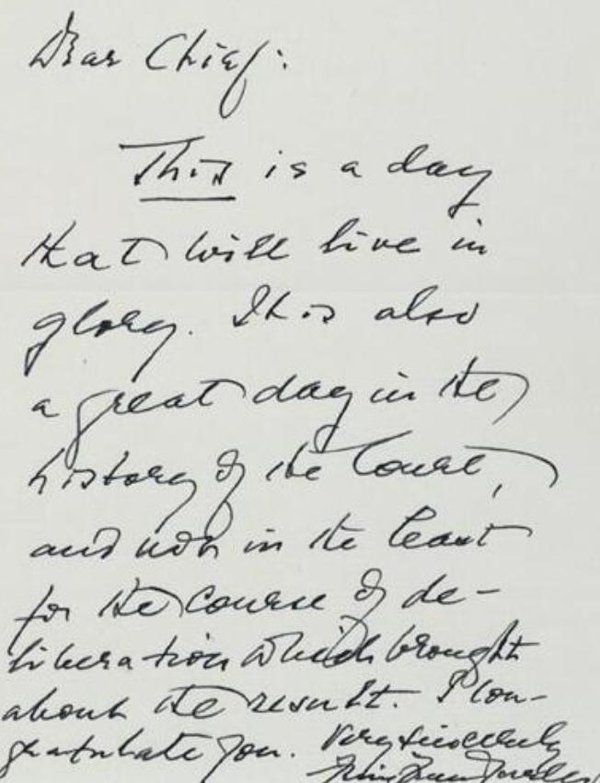 Dear Chief:
This is a day
that will live in
glory. It is also
a great day in the
history of the Court,
and not in the least
for the course of de-
liberation which brought
about the result. I con-
gratulate you. Very sincerely